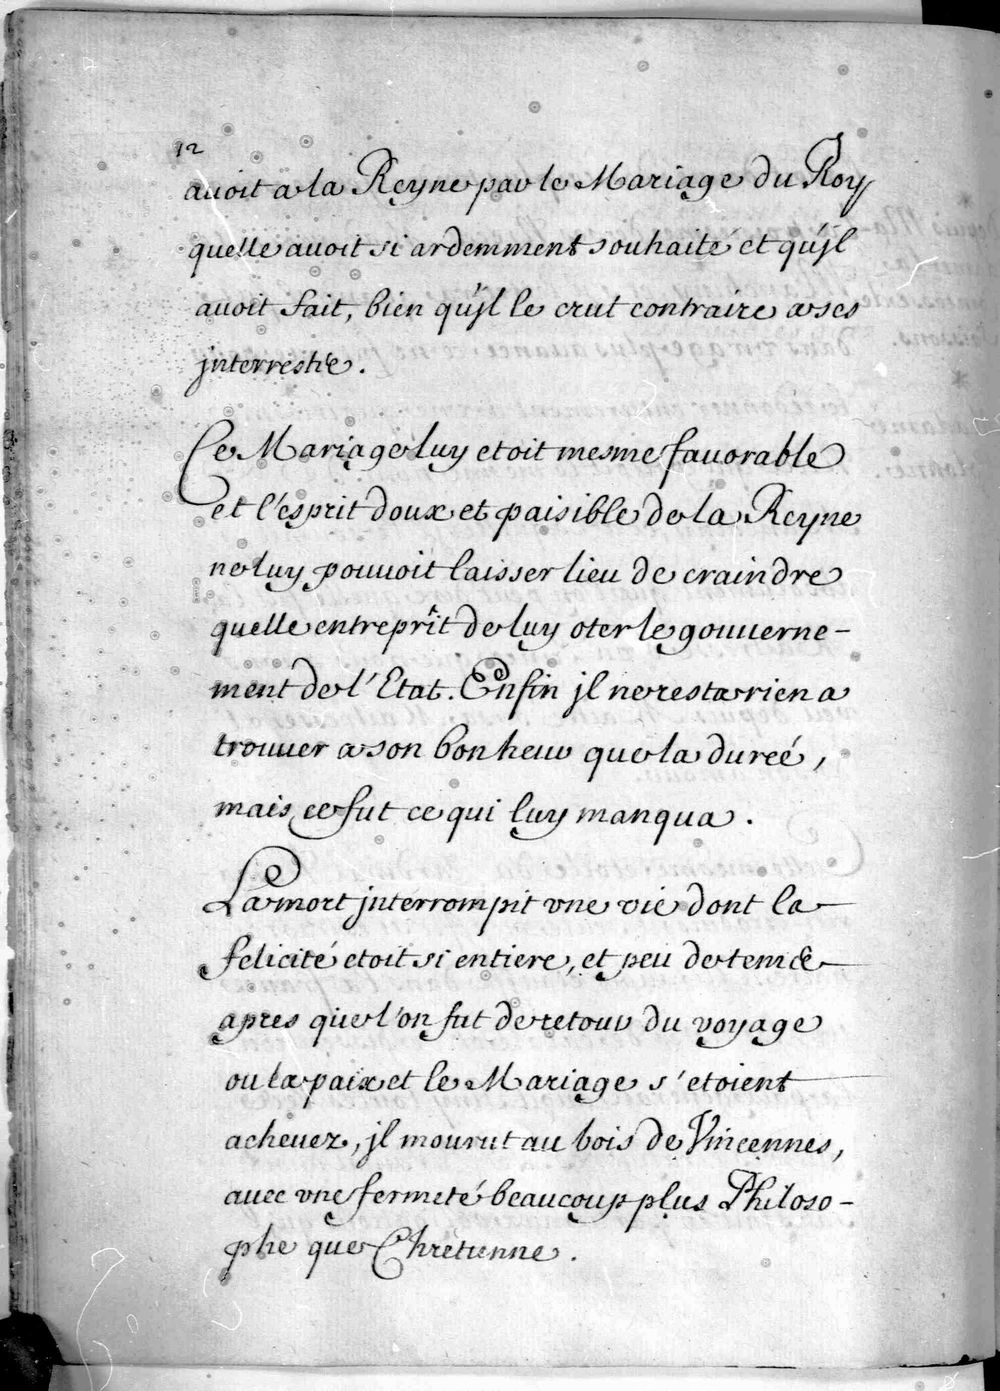 12
auoit a la Reyne par le Mariage du Roy
quelle auoit si ardemment souhaité et qu'jl
auoit fait, bien qu'jl le crut contraire a ses
jnterrestz.
Ce Mariage luy etoit mesme fauorable
et l'esprit doux et paisible de la Reyne
ne luy pouuoit laisser lieu de craindre
quelle entreprît de luy oter le gouuerne-
ment de l'Etat. Enfin jl ne resta rien a
trouuer a son bonheur que la dureé,
mais ce fut ce qui luy manqua.
La mort jnterrompit vne vie dont la
felicité etoit si entiere, et peu de tems
apres que l'on fut de retour du voyage
ou la paix et le Mariage s'etoient
acheuez, jl mourut au bois de Vincennes,
auec vne fermeté beaucoup plus Philoso-
phe que Chrétienne.